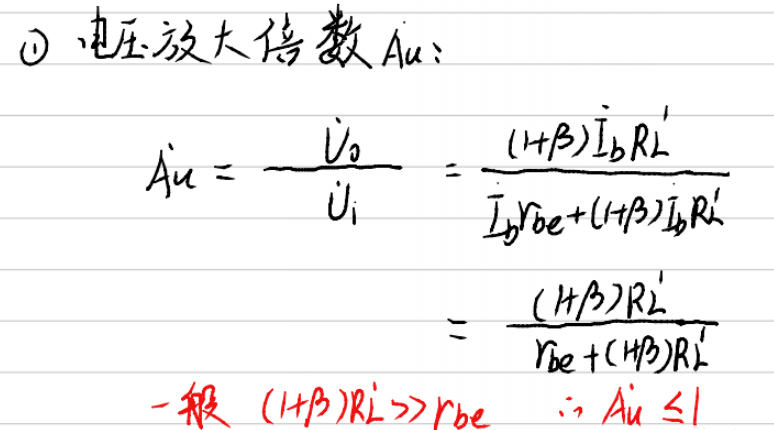 ① 电压放大倍数 Au:
Ȧu = U̇o / U̇i = (1+β)İbRL' / İbrbe+(1+β)İbRL'
= (1+β)RL' / rbe+(1+β)RL'
一般 (1+β)RL'>>rbe ∴ Ȧu ≤1